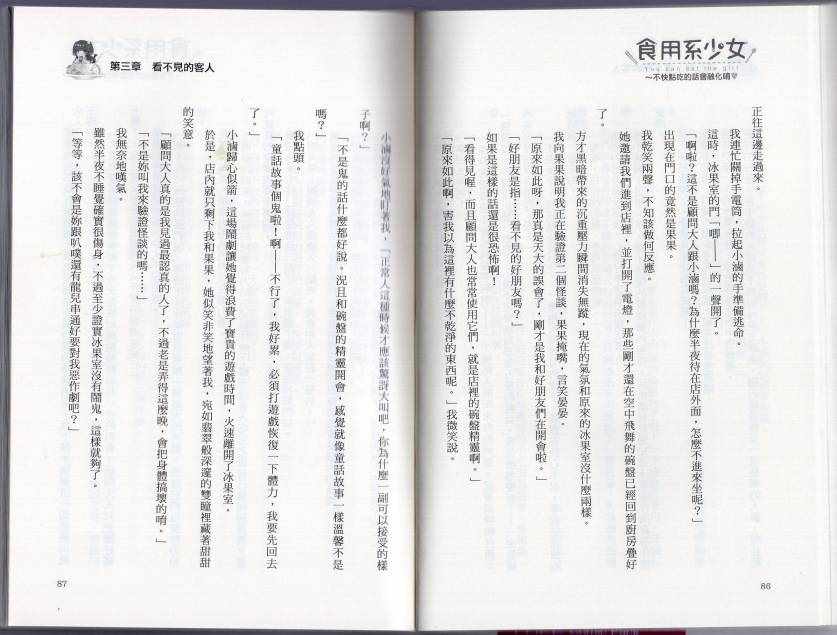 食用系少女
You can eat the girl
～不快點吃的話會融化唷♥
正往這邊走過來。
我連忙關掉手電筒，拉起小滷的手準備逃命。
這時，冰果室的門「唧——」的一聲開了。
「啊啦？這不是顧問大人跟小滷嗎？為什麼半夜待在店外面，怎麼不進來坐呢？」
出現在門口的竟然是果果。
我乾笑兩聲，不知該做何反應。
她邀請我們進到店裡，並打開了電燈，那些剛才還在空中飛舞的碗盤已經回到廚房疊好
了。
方才黑暗帶來的沉重壓力瞬間消失無蹤，現在的氣氛和原來的冰果室沒什麼兩樣。
我向果果說明我正在驗證第二個怪談，果果掩嘴，言笑晏晏。
「原來如此呀，那真是天大的誤會了，剛才是我和好朋友們在開會啦。」
「好朋友是指……看不見的好朋友嗎？」
如果是這樣的話還是很恐怖啊！
「看得見喔，而且顧問大人也常常使用它們，就是店裡的碗盤精靈啊。」
「原來如此啊，害我以為這裡有什麼不乾淨的東西呢。」我微笑說。
86
第三章　看不見的客人
小滷沒好氣地盯著我，「正常人這種時候才應該驚訝大叫吧，你為什麼一副可以接受的樣
子啊？」
「不是鬼的話什麼都好說。況且和碗盤的精靈開會，感覺就像童話故事一樣溫馨不是
嗎？」
我點頭。
「童話故事個鬼啦！啊——不行了，我好累，必須打遊戲恢復一下體力，我要先回去
了。」
小滷歸心似箭，這場鬧劇讓她覺得浪費了寶貴的遊戲時間，火速離開了冰果室。
於是，店內就只剩下我和果果，她似笑非笑地望著我，宛如翡翠般深邃的雙瞳裡藏著甜甜
的笑意。
「顧問大人真的是我見過最認真的人了，不過老是弄得這麼晚，會把身體搞壞的唷。」
「不是妳叫我來驗證怪談的嗎……」
我無奈地嘆氣。
雖然半夜不睡覺確實很傷身，不過至少證實冰果室沒有鬧鬼，這樣就夠了。
「等等，該不會是妳跟叭噗還有龍兒串通好要對我惡作劇吧？」
87